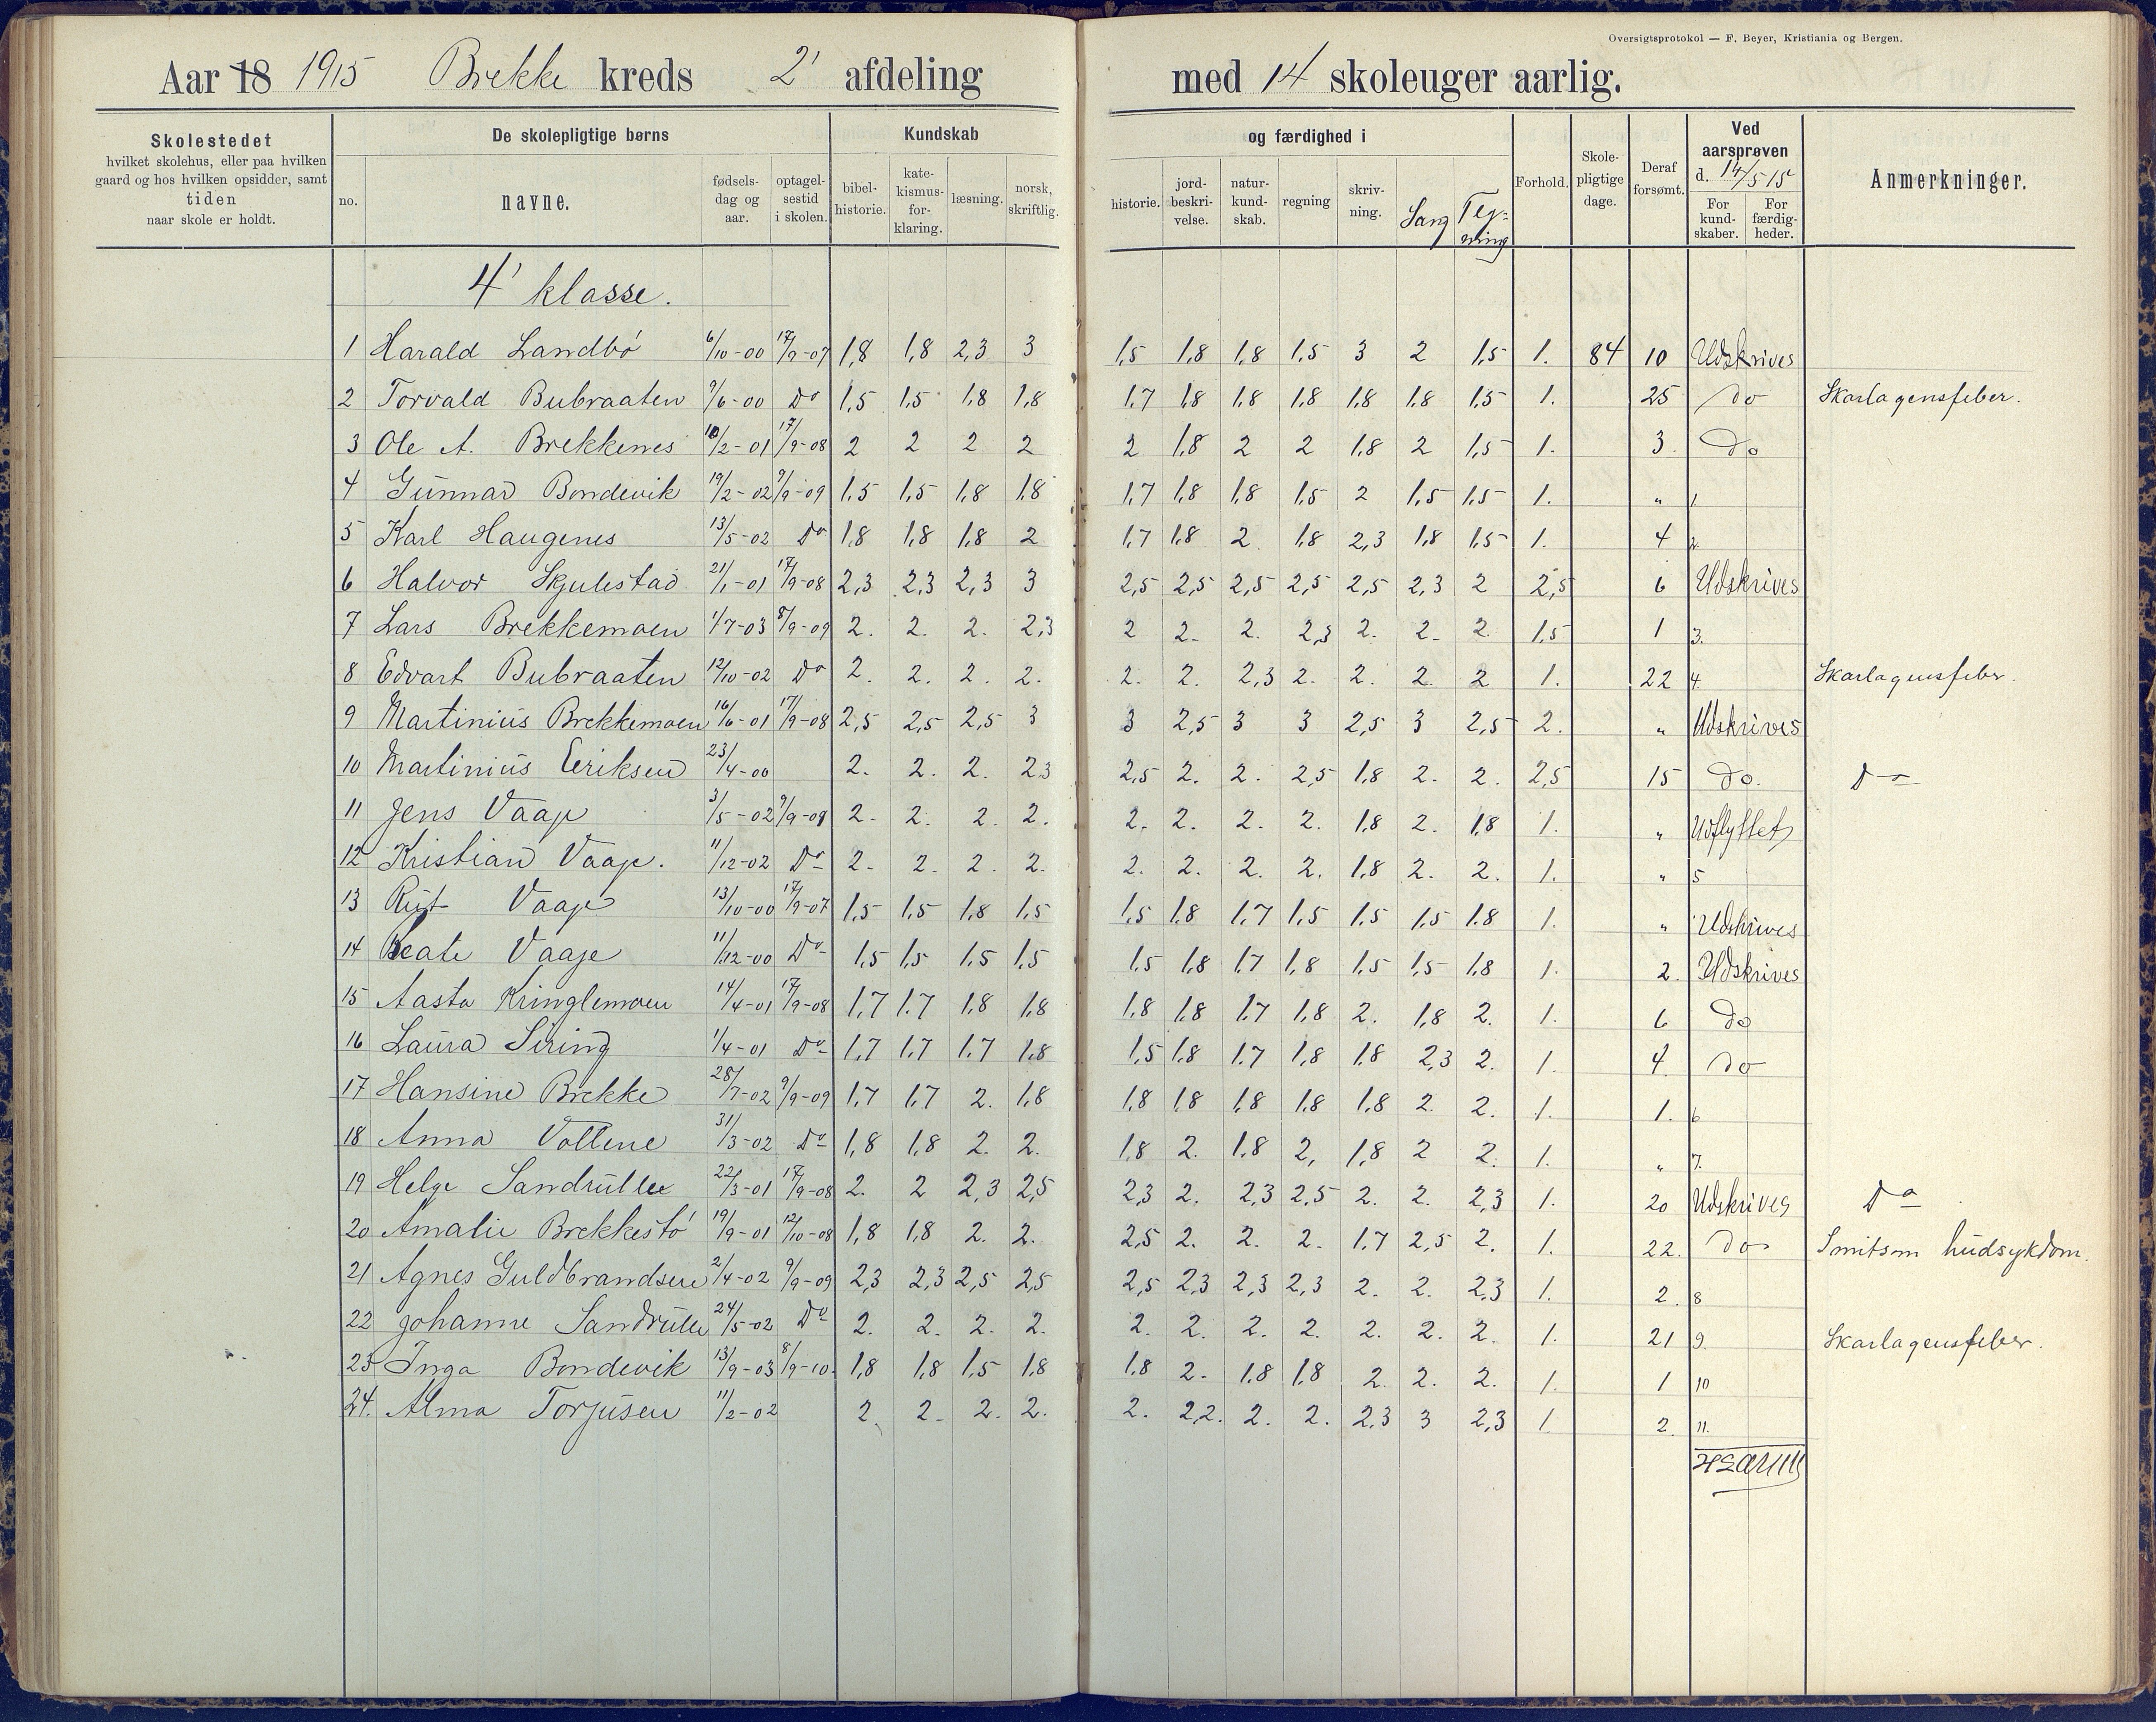 Oversigtsprotokol — F. Beyer, Kristiania og Bergen.
Aar 18 1915 Brekke kreds 2' afdeling med 14 skoleuger aarlig.
Skolestedet hvilket skolehus, eller paa hvilken gaard og hos hvilken opsidder, samt tiden naar skole er holdt.
De skolepligtige børns
no. navne. fødselsdag og aar. optagelsestid i skolen.
Kundskab og færdighed i
bibelhistorie. katekismusforklaring. læsning. norsk, skriftlig. historie. jordbeskrivelse. naturkundskab. regning skrivning. Sang Tegning
Forhold. Skolepligtige dage. Deraf forsømt. Ved aarsprøven d. 14/5 15 For kundskaber. For færdigheder. Anmerkninger.
4' klasse.
1 Harald Landbö 6/10-00 17/9-07 1,8 1,8 2,3 3 1,5 1,8 1,8 1,5 3 2 1,5 1. 84 10 Udskrives
2 Torvald Bubraaten 9/6-00 Do 1,5 1,5 1,8 1,8 1,7 1,8 1,8 1,8 1,8 1,8 1,5 1. 25 do Skarlagensfeber.
3 Ole A. Brekkenes 10/2-01 17/9-08 2 2 2 2 2 1,8 2 2 1,8 2 1,5 1. 3. do
4 Gunnar Bondevik 19/2-02 9/9-09 1,5 1,5 1,8 1,8 1,7 1,8 1,8 1,5 2 1,5 1,5 1. " 1.
5 Karl Haugenes 13/5-02 Do 1,8 1,8 1,8 2 1,7 1,8 2. 1,8 2,3 1,8 1,5 1. 4 2.
6 Halvor Skjulestad 21/1-01 17/9-08 2,3 2,3 2,3 3 2,5 2,5 2,5 2,5 2,5 2,3 2 2,5 6 Udskrives
7 Lars Brekkemoen 1/7-03 8/9-09 2. 2. 2. 2,3 2 2. 2. 2,3 2. 2. 2. 1,5 1 3.
8 Edvart Bubraaten 12/10-02 Do 2. 2. 2. 2. 2. 2. 2,3 2. 2. 2. 2 1. 22 4. Skarlagensfeber.
9 Martinius Brekkemoen 16/6-01 17/9-08 2,5 2,5 2,5 3 3 2,5 3 3 2,5 3 2,5 2. " Udskrives
10 Martinius Eeriksen 23/4-00 2. 2. 2. 2,3 2,5 2. 2. 2,5 1,8 2. 2. 2,5 15 do. Do
11 Jens Vaaje 3/5-02 9/9-08 2. 2. 2. 2. 2. 2. 2. 2. 1,8 2. 1,8 1. " Udflyttet
12 Kristian Vaaje. 11/12-02 Do 2. 2. 2. 2. 2. 2. 2. 2. 1,8 2. 2. 1. " 5
13 Rut Vaaje 13/10-00 17/9-07 1,5 1,5 1,8 1,5 1,5 1,8 1,7 1,5 1,5 1,5 1,8 1. " Udskrives
14 Beate Vaaje 11/12-00 Do 1,5 1,5 1,5 1,5 1,5 1,8 1,7 1,8 1,5 1,5 1,8 1. 2. Udskrives
15 Aasta Kringlemoen 14/4-01 17/9-08 1,7 1,7 1,8 1,8 1,8 1,8 1,7 1,8 2. 1,8 2. 1. 6 do
16 Laura Siring 1/4-01 Do 1,7 1,7 1,7 1,8 1,5 1,8 1,7 1,8 1,8 2,3 2. 1. 4. do
17 Hansine Brekke 28/7-02 9/9-09 1,7 1,7 2. 1,8 1,8 1,8 1,8 1,8 1,8 2. 2. 1. 1. 6
18 Anna Vollene 31/3-02 Do 1,8 1,8 2. 2. 1,8 2. 1,8 2, 1,8 2 2. 1. " 7.
19 Helge Sandrulle 22/3-01 17/9-08 2. 2 2,3 2,5 2,3 2. 2,3 2,5 2. 2. 2,3 1. 20 Udskrives Do
20 Amalie Brekkestö 19/9-01 12/10-08 1,8 1,8 2. 2. 2,5 2. 2. 2. 1,7 2,5 2. 1. 22. do Smitsom hudsykdom.
21 Agnes Guldbrandsen 2/4-02 9/9-09 2,3 2,3 2,5 2,5 2,5 2,3 2,3 2,3 2. 2. 2,3 1. 2. 8
22 Johanne Sandrulle 24/5-02 Do 2. 2. 2. 2. 2. 2. 2. 2. 2. 2. 2. 1. 21 9. Skarlagensfeber.
23 Inga Bondevik 13/9-03 8/9-10. 1,8 1,8 1,5 1,8 1,8 2. 1,8 1,8 2. 2. 2. 1. 1 10
24. Alma Torjusen 11/2-02 2. 2. 2. 2. 2. 2,2. 2. 2. 2,3 3 2,3 1. 2. 11.